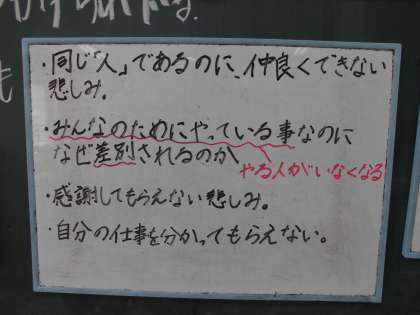 ・同じ「人」であるのに、仲良くできない
悲しみ。
・みんなのためにやっている事なのに
なぜ差別されるのか
やる人がいなくなる
・感謝してもらえない悲しみ。
・自分の仕事を分かってもらえない。
も